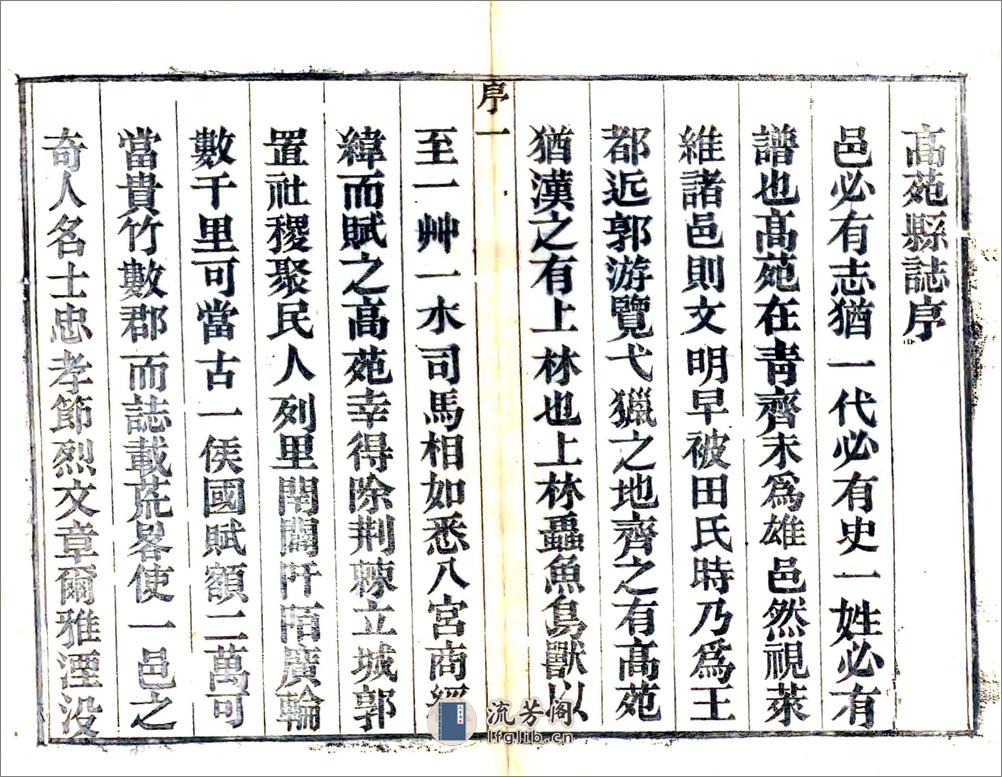 高苑縣誌序
邑必有志猶一代必有史一姓必有
譜也高苑在青齊未爲雄邑然視萊
維諸邑則文明早被田氏時乃爲王
都近郭游覽弋獵之地齊之有高苑
猶漢之有上林也上林蟲魚鳥獸以
序一
至一艸一木司馬相如悉入宮商經
緯而賦之高苑幸得除荆棘立城郭
置社稷聚民人列里閈闢阡陌廣輪
數千里可當古一侯國賦額二萬可
當貴竹數郡而誌載荒畧使一邑之
奇人名士忠孝節烈文章爾雅湮没
流芳阁
lfglib.cn